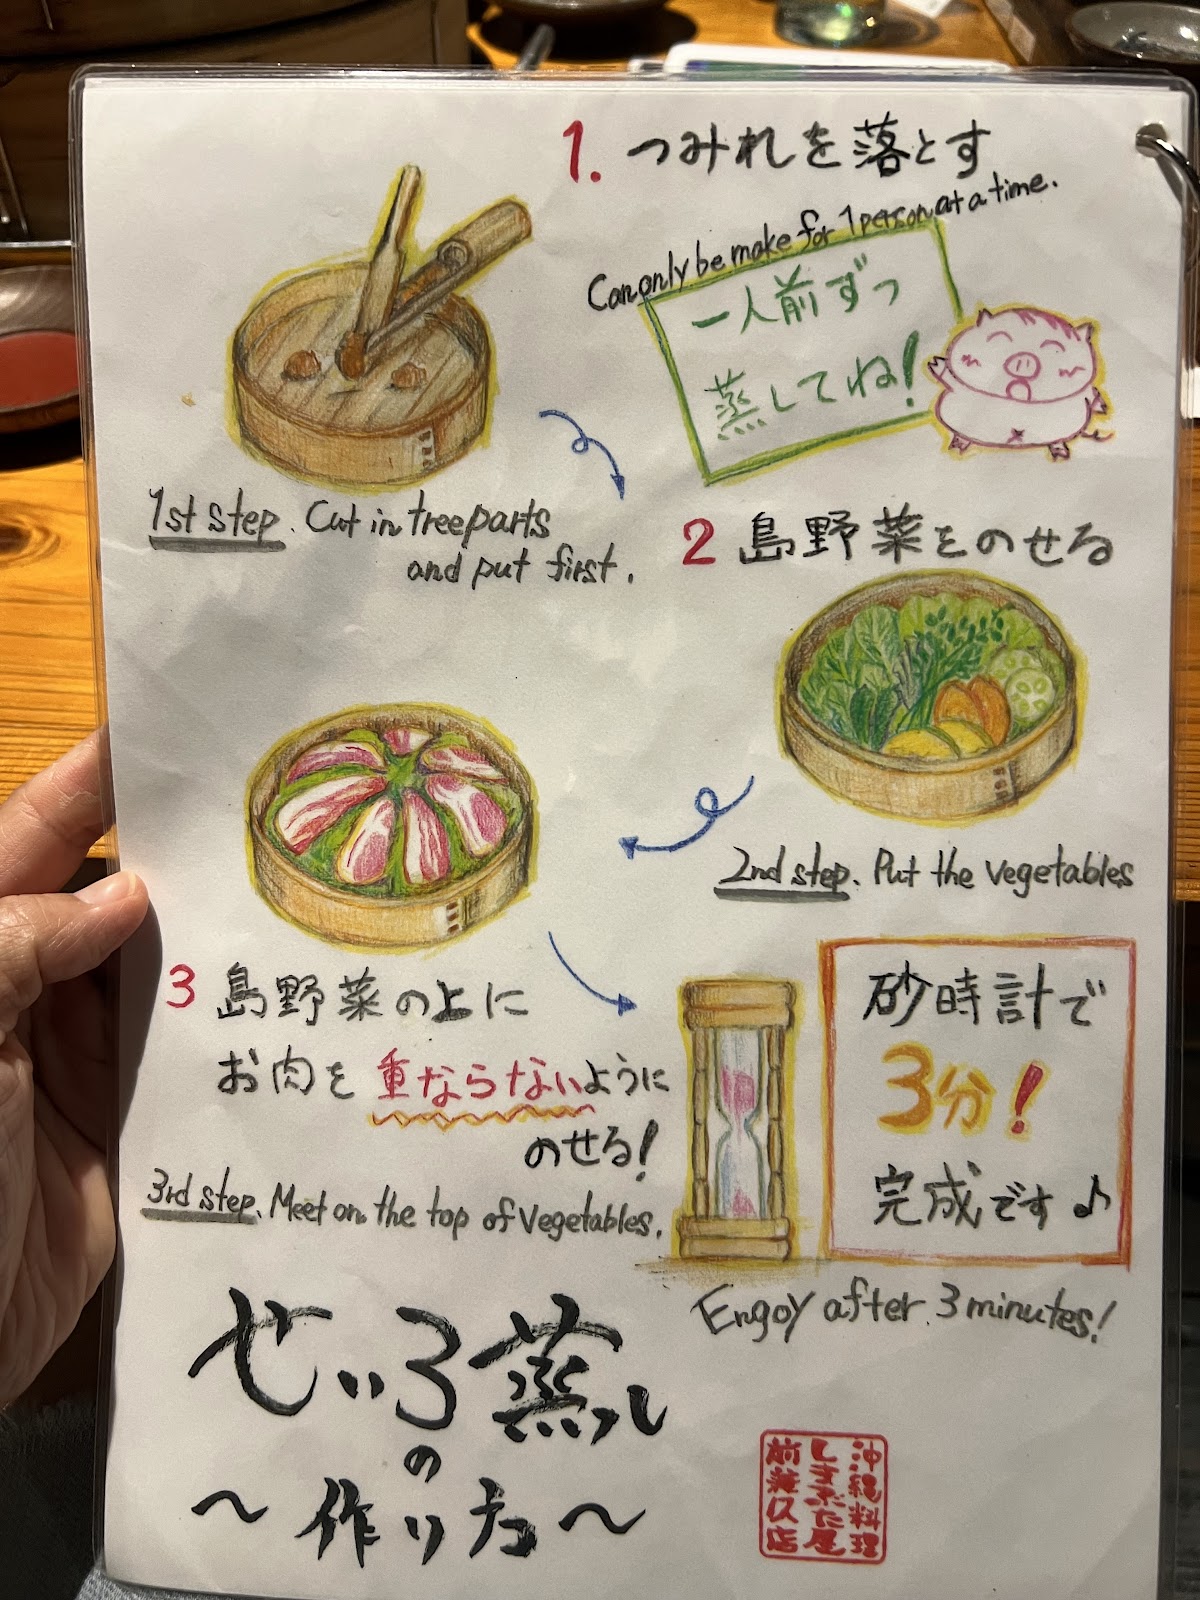 1. つみれを落とす
Can only be make for 1 person at a time.
一人前ずつ
蒸してね!
1st step. Cut in treeparts
and put first.
2 島野菜をのせる
2nd step. Put the vegetables
3 島野菜の上に
お肉を重ならないように
のせる!
3rd step. Meet on the top of vegetables.
砂時計で
3分!
完成です♪
Engoy after 3 minutes!
せいろ蒸し
の
〜作り方〜
沖縄料理
しまぶた屋
前兼久店